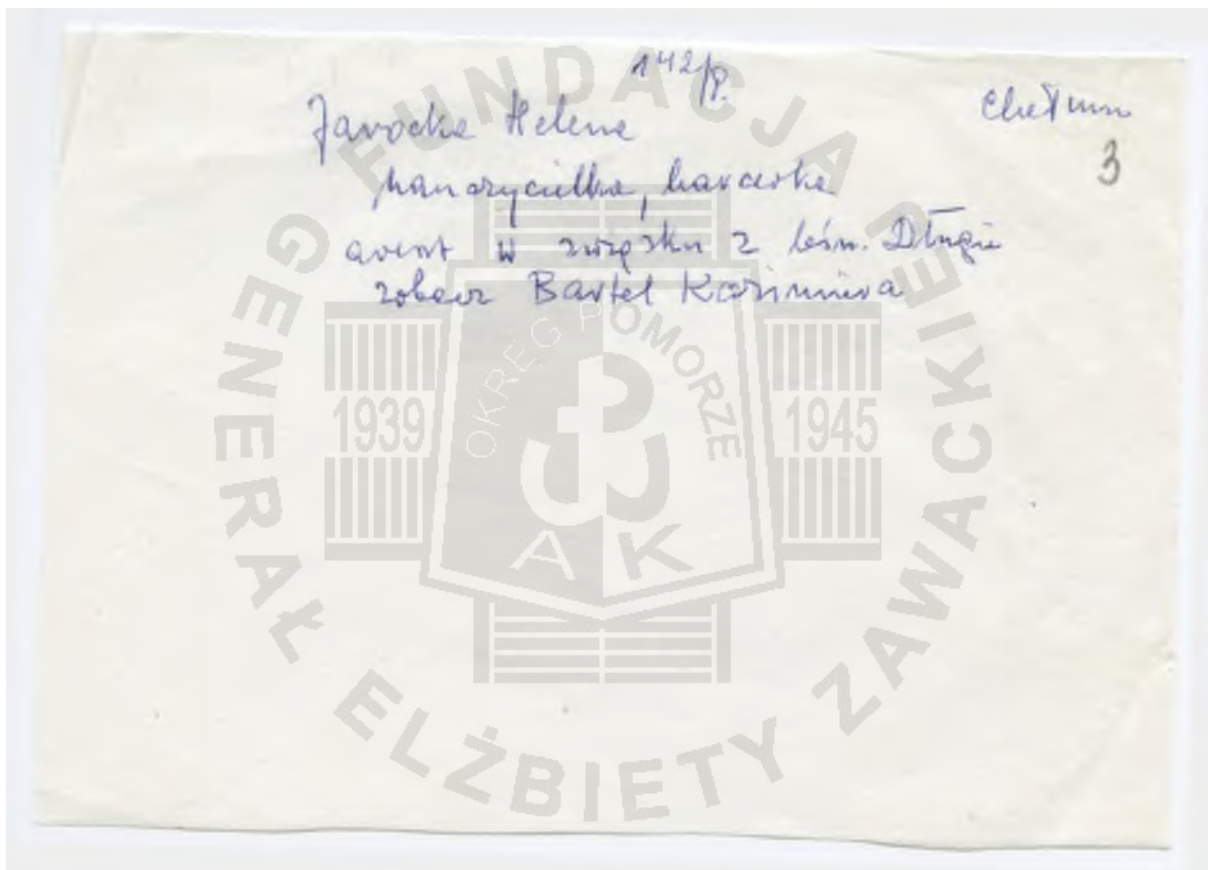 142/P.
Chełmn
3
Jarocka Helena
nauczycielka, harcerka
areszt w związku z leśn. Długie
zobacz Bartel Kazimiera
FUNDACJA
GENERAŁ ELŻBIETY ZAWACKIEJ
OKRĘG POMORZE
1939
1945
AK